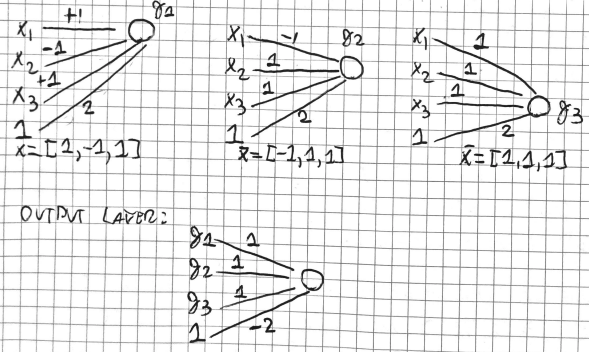 x1 +1 g1
x2 -1
x3 +1
1 2
x=[1,-1,1]
x1 -1 g2
x2 1
x3 1
1 2
x̄=[-1,1,1]
x1 1
x2 1
x3 1 g3
1 2
x̄=[1,1,1]
OUTPUT LAYER:
g1 1
g2 1
g3 1
1 -2